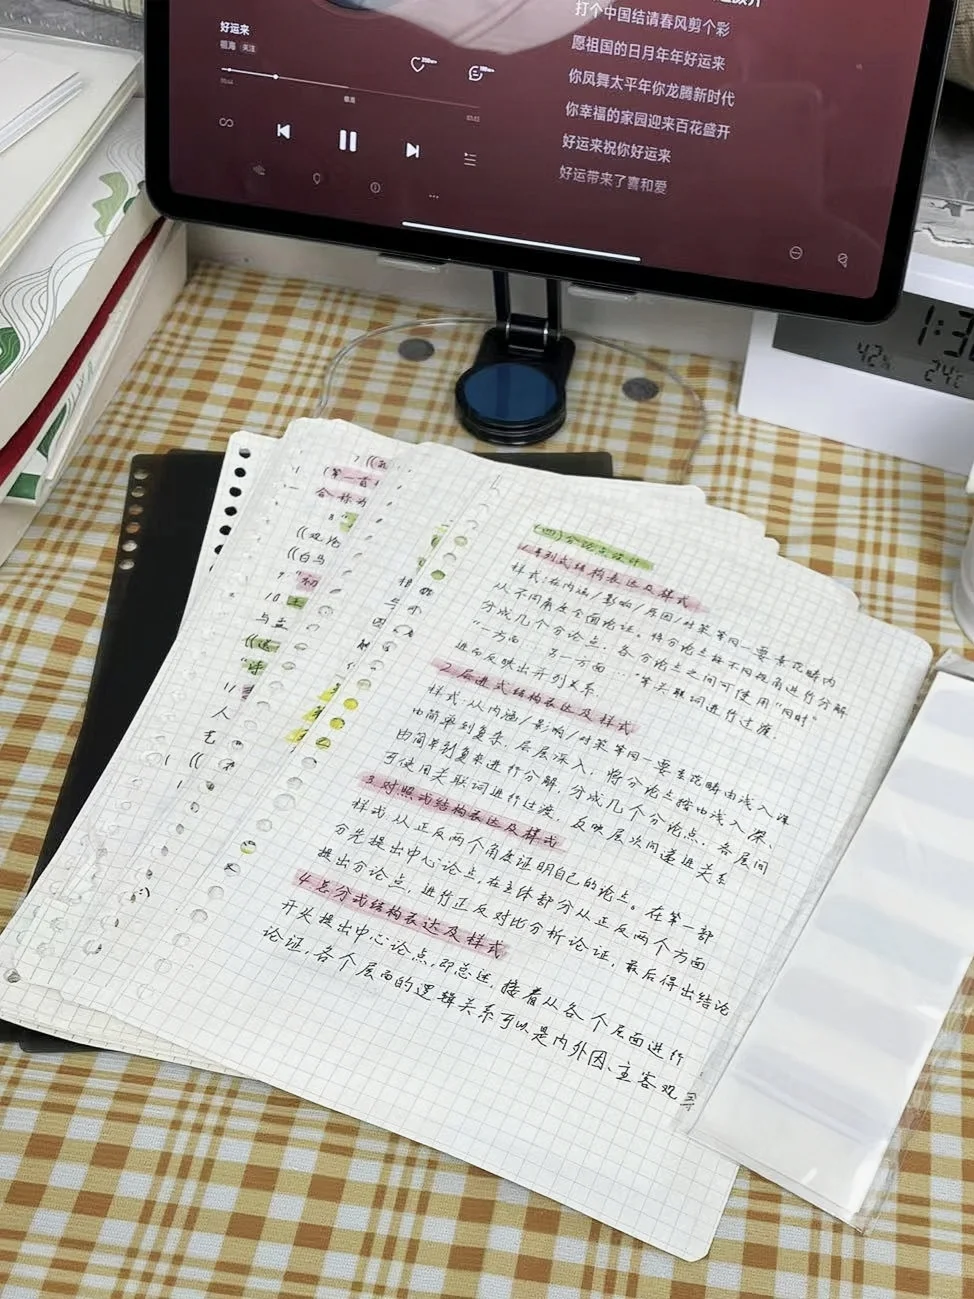 好运来
祖海 关注
打个中国结请春风剪个彩
愿祖国的日月年年好运来
你凤舞太平年你龙腾新时代
你幸福的家园迎来百花盛开
好运来祝你好运来
好运带来了喜和爱
1:3
42%
24℃
(四)分论点设计
1.并列式结构表达及样式
样式:在内涵/影响/原因/对策等同一要素范畴内
从不同角度全面论证。将分论点按不同视角进行分解
分成几个分论点,各分论点之间可使用"同时"
"一方面…另一方面…"等关联词进行过渡,
进而反映出并列关系.
2.层进式结构表达及样式
样式:从内涵/影响/对策等同一要素范畴由浅入深
由简单到复杂,层层深入,将分论点按由浅入深、
由简单到复杂进行分解,分成几个分论点,各层间
可使用关联词进行过渡,反映层次间递进关系
3.对照式结构表达及样式
样式:从正反两个角度证明自己的论点。在第一部
分先提出中心论点,在主体部分从正反两个方面
提出分论点,进行正反对比分析论证,最后得出结论
4.总分式结构表达及样式
开头提出中心论点,即总述,接着从各个层面进行
论证,各个层面的逻辑关系可以是内外因、主客观等